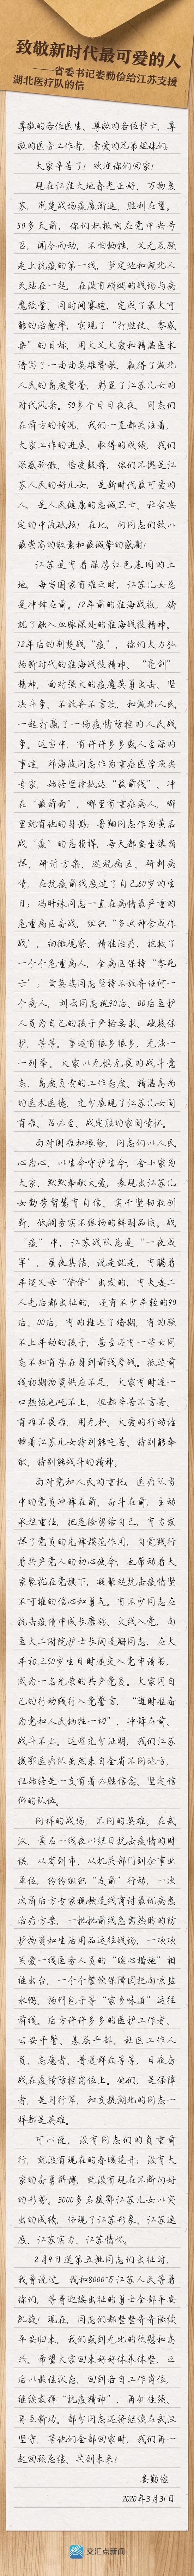 致敬新时代最可爱的人
——省委书记娄勤俭给江苏支援
湖北医疗队的信
尊敬的各位医生、尊敬的各位护士、尊
敬的医务工作者,亲爱的兄弟姐妹们:
大家辛苦了!欢迎你们回家!
现在江淮大地春光正好、万物复
苏,荆楚战场疫魔渐退、胜利在望。
50多天前,你们积极响应党中央号
召,闻令而动、不怕牺牲,义无反顾
走上抗疫的第一线,坚定地和湖北人
民站在一起,在没有硝烟的战场与病
魔较量、同时间赛跑,完成了最大可
能的治愈率,实现了“打胜仗、零感
染”的目标,用大义大爱和精湛医术
谱写了一曲曲英雄赞歌,赢得了湖北
人民的高度赞誉,彰显了江苏儿女的
时代风采。50多个日日夜夜,同志们
在前方的情况,我们一直都关注着,
大家工作的进展、取得的成绩,我们
深感骄傲、倍受鼓舞,你们不愧是江
苏人民的好儿女,是新时代最可爱的
人,是人民健康的忠诚卫士、社会安
定的中流砥柱!在此,向同志们致以
最崇高的敬意和最诚挚的感谢!
江苏是有着深厚红色基因的土
地,每当国家有难之时,江苏儿女总
是冲锋在前。72年前的淮海战役,铸
就了融入血脉深处的淮海战役精神。
72年后的荆楚战“疫”,你们大力弘
扬新时代的淮海战役精神、“亮剑”
精神,面对强大的疫魔英勇出击、坚
决斗争、不放弃不言败,和湖北人民
一起打赢了一场疫情防控的人民战
争。这当中,有许许多多感人至深的
事迹,邱海波同志作为重症医学顶尖
专家,始终坚持抵达“最前线”、冲
在“最前面”,哪里有重症病人,哪
里就有他的身影;鲁翔同志作为黄石
战“疫”的总指挥,每天都要坐镇指
挥、研讨方案、巡视病区、研判病
情,在抗疫前线度过了自己60岁的生
日;冯旰珠同志一直在病情最严重的
危重病区奋战。组织“多兵种合成作
战”,细微观察、精准治疗,挽救了
一个个危重病人,全病区保持“零死
亡”;黄英姿同志坚持不放弃任何一
个病人,刘云同志视90后、00后医护
人员为自己的孩子严格要求、硬核保
护,等等。事迹有很多很多,无法一
一列举。大家以无惧无畏的战斗意
志、高度负责的工作态度、精湛高尚
的医术医德,充分展现了江苏儿女国
有难、召必至、战定胜的家国情怀。
面对困难和艰险,同志们以人民
心为心、以生命守护生命,舍小家为
大家、默默奉献大爱,表现出江苏儿
女勤劳智慧有自信、实干坚韧敢创
新、低调务实不张扬的鲜明品质。战
“疫”中,江苏战队总是“一夜成
军”,星夜集结、说走就走,有瞒着
年迈父母“偷偷”出发的,有夫妻二
人先后都出征的,还有不少年轻的90
后、00后,有的推迟了婚期,有的顾
不上年幼的孩子,甚至还有一些女同
志不知有孕在身到前线参战。抵达前
线初期物资供应不足,大家有时连一
口热饭也吃不上,但都辛苦不言苦、
有难不畏难,用无私、大爱的行动诠
释着江苏儿女特别能吃苦、特别能奉
献、特别能战斗的精神。
面对党和人民的重托,医疗队当
中的党员冲锋在前、奋斗在前,主动
承担重任,把危险留给自己,有力发
挥了党员的先锋模范作用,自觉践行
着共产党人的初心使命,也带动着大
家聚拢在党旗下,凝聚起抗击疫情坚
不可摧的信心和勇气。有不少同志在
抗击疫情中成长磨砺、火线入党,南
医大二附院护士长陶连珊同志,在大
年初三50岁生日时递交入党申请书,
成为一名光荣的共产党员。大家用自
己的行动践行入党誓言,“随时准备
为党和人民牺牲一切”,冲锋在前、
战斗不止。这些充分证明,我们江苏
援鄂医疗队虽然来自全省不同地方,
但始终是一支有着必胜信念、坚定信
仰的队伍。
同样的战场,不同的英雄。在武
汉、黄石一线夜以继日抗击疫情的时
候,从省到市、从机关部门到企事业
单位,纷纷组织“支前”行动,一次
次前后方专家视频连线商讨最优病患
治疗方案,一批批前线急需热盼的防
护物资和生活用品运往战场,一项项
关爱一线医务人员的“暖心措施”相
继出台,一个个餐饮保障团把南京盐
水鸭、扬州包子等“家乡味道”送往
前线。后方许许多多的医护工作者、
公安干警、基层干部、社区工作人
员、志愿者、普通群众等等,日夜奋
战在疫情防控岗位上。他们,是保障
者,是同行军,和支援湖北的同志一
样都是英雄。
可以说,没有同志们的负重前
行,就没有现在的春暖花开;没有大
家的奋勇拼搏,就没有现在不断向好
的形势。3000多名援鄂江苏儿女以突
出的成绩,体现了江苏形象、江苏速
度、江苏实力、江苏情怀。
2月9日送第五批同志们出征时,
我曾说过,我和8000万江苏人民等着
你们,等着迎接出征的勇士全部平安
凯旋!现在,同志们都整整齐齐陆续
平安归来,我们感到无比的欣慰和高
兴。希望大家回来好好休养休整,之
后以最佳状态,回到各自工作岗位,
继续发挥“抗疫精神”,再创佳绩、
再立新功。部分同志还将继续在武汉
坚守,等他们全部回家时,我们再一
起回顾总结、共创未来!
娄勤俭
2020年3月31日
交汇点新闻